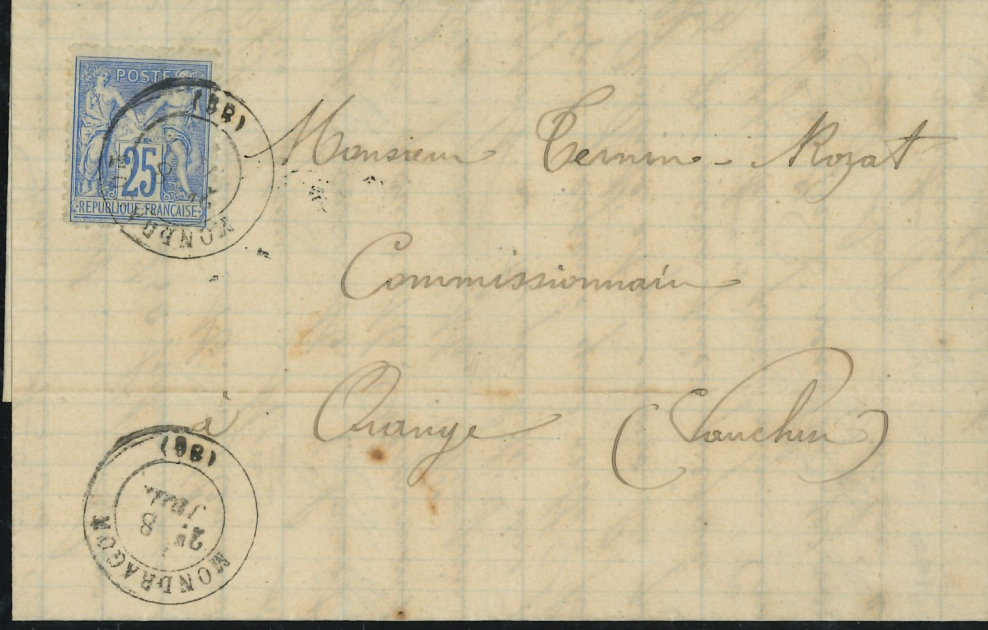 POSTE
25
REPUBLIQUE FRANÇAISE
MONDRAGON
(86)
Monsieur Ternin - Rozat
Commissionnaire
à Orange (Vaucluse)
MONDRAGON
2E
8
JUIL.
(86)